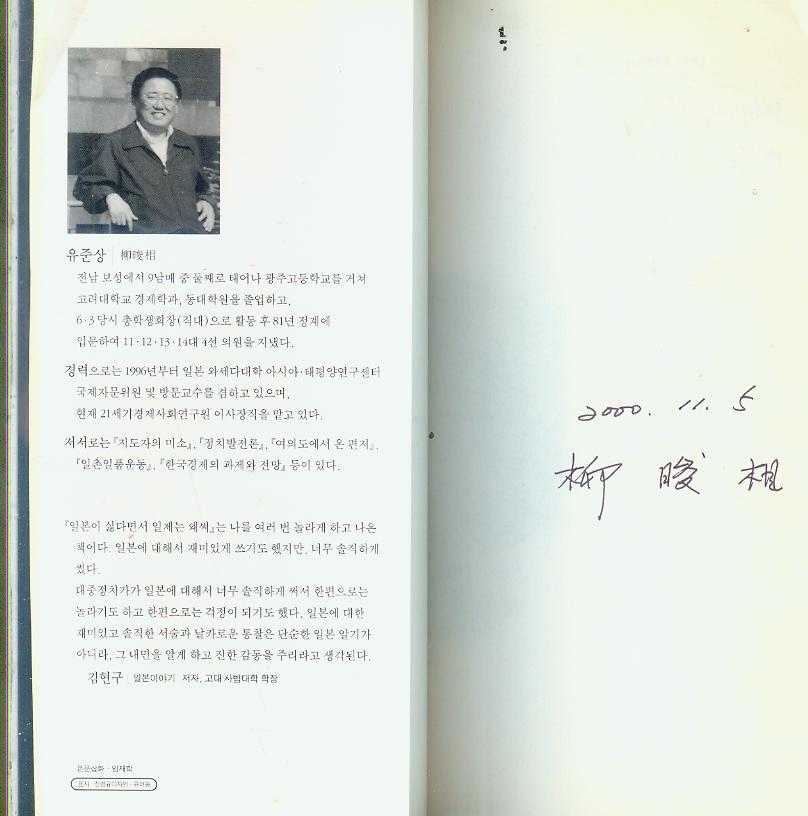 유준상 | 柳晙相
전남 보성에서 9남매 중 둘째로 태어나 광주고등학교를 거쳐
고려대학교 경제학과, 동대학원을 졸업하고,
6·3 당시 총학생회장(직대)으로 활동 후 81년 정계에
입문하여 11·12·13·14대 4선 의원을 지냈다.
경력으로는 1996년부터 일본 와세다대학 아시아·태평양연구센터
국제자문위원 및 방문교수를 겸하고 있으며,
현재 21세기경제사회연구원 이사장직을 맡고 있다.
저서로는 『지도자의 미소』, 『정치발전론』, 『여의도에서 온 편지』,
『일촌일품운동』, 『한국경제의 과제와 전망』 등이 있다.
『일본이 싫다면서 일제는 왜써』는 나를 여러 번 놀라게 하고 나온
책이다. 일본에 대해서 재미있게 쓰기도 했지만, 너무 솔직하게
썼다.
대중정치가가 일본에 대해서 너무 솔직하게 써서 한편으로는
놀라기도 하고 한편으로는 걱정이 되기도 했다. 일본에 대한
재미있고 솔직한 서술과 날카로운 통찰은 단순한 일본 알기가
아니라, 그 내면을 알게 하고 진한 감동을 주리라고 생각된다.
김현구 | 일본이야기 저자, 고대 사범대학 학장
본문삽화 · 임재학
표지 · 정병규디자인 ·
2000. 11. 5
柳 晙 相